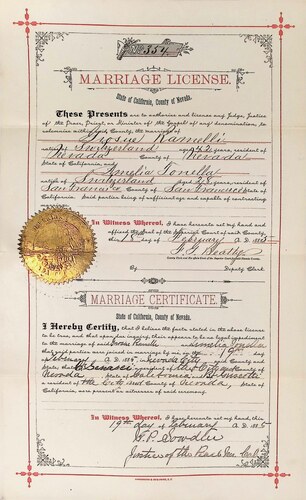 No. 354
MARRIAGE LICENSE.
State of California, County of Nevada.
These Presents are to authorize and license any Judge, Justice
of the Peace, Priest or Minister of the Gospel of any denomination, to
solemnize within said County, the marriage of
Giosue Ramelli
native of Switzerland aged 42 years, resident of
Nevada County of Nevada
State of California, and
Amelia Tonella
native of Switzerland aged years, resident of
San Francisco County of San Francisco State of
California. Said parties being of sufficient age and capable of contracting
In Witness Whereof, I have hereunto set my hand and
affixed the Seal of the Superior Court of said County,
this 18 day of February A. D. 1885
By
Deputy Clerk
MARRIAGE CERTIFICATE.
State of California, County of Nevada.
I Hereby Certify, that I believe the facts stated in the above license
to be true, and that upon due inquiry, there appears to be no legal impediment
to the marriage of said Giosue Ramelli and Amelia Tonella
that said parties were joined in marriage by me on the 19th day of
February A. D. 1885, in Nevada City County and
State; that a resident of City County of
Nevada State of California and
a resident of the City and County of Nevada, State of
California, are present as witnesses of said ceremony.
In Witness Whereof, I have hereunto set my hand, this
19th day of February A. D. 1885
Justice of the Peace